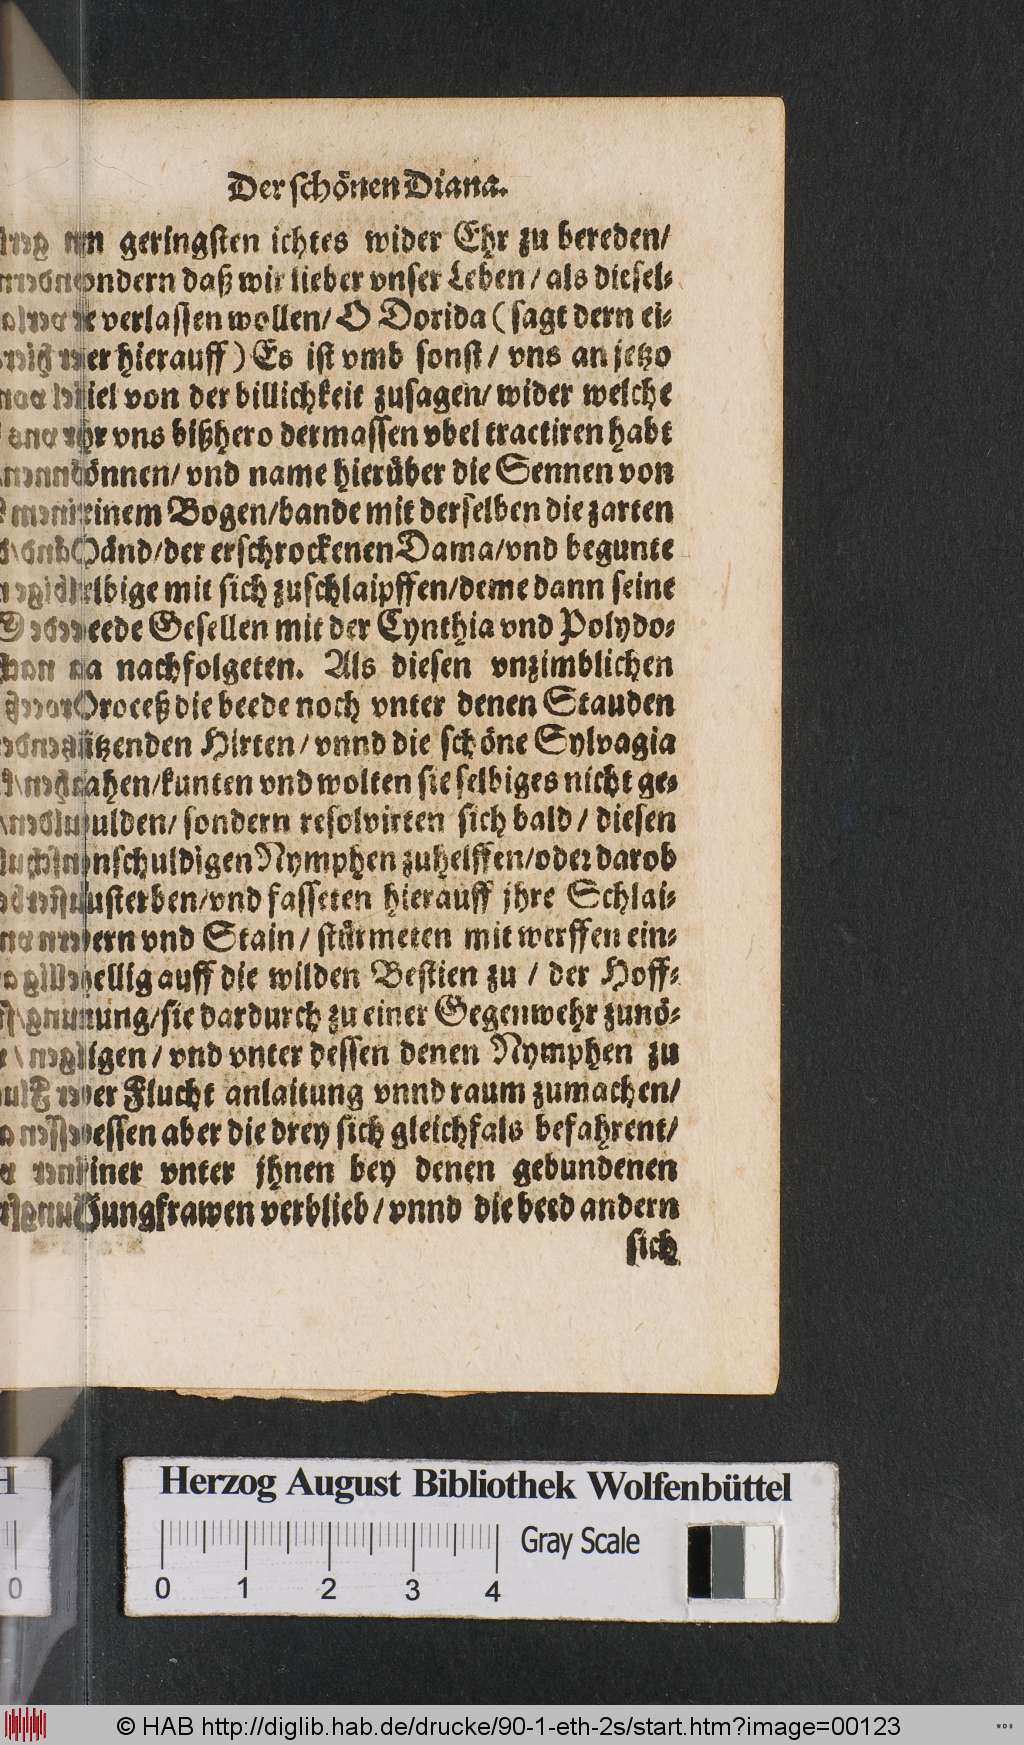 Der schönen Diana.
im geringsten ichtes wider Ehr zu bereden/
sondern daß wir lieber vnser Leben / als diesel-
be verlassen wollen/ O Dorida ( sagt dern ei-
ner hierauff ) Es ist vmb sonst / vns an jetzo
viel von der billichkeit zusagen/ wider welche
jhr vns bißhero dermassen vbel tractiren habt
können/ vnd name hierüber die Sennen von
einem Bogen/bande mit derselben die zarten
Händ/der erschrockenen Dama/vnd begunte
selbige mit sich zuschlaipffen/deme dann seine
beede Gesellen mit der Cynthia vnd Polydo-
ra nachfolgeten. Als diesen vnzimblichen
Proceß die beede noch vnter denen Stauden
sitzenden Hirten / vnnd die schöne Sylvagia
sahen/kunten vnd wolten sie selbiges nicht ge-
dulden/ sondern resolvirten sich bald / diesen
vnschuldigen Nymphen zuhelffen/oder darob
zusterben/vnd fasseten hierauff jhre Schlai-
dern vnd Stain / stürmeten mit werffen ein-
hellig auff die wilden Bestien zu / der Hoff-
nung/sie dardurch zu einer Gegenwehr zunö-
tigen / vnd vnter dessen denen Nymphen zu
der Flucht anlaitung vnnd raum zumachen/
dessen aber die drey sich gleichfals befahrent/
einer vnter jhnen bey denen gebundenen
Jungfrawen verblieb / vnnd die beed andern
sich
Herzog August Bibliothek Wolfenbüttel
0 1 2 3 4 Gray Scale
© HAB http://diglib.hab.de/drucke/90-1-eth-2s/start.htm?image=00123